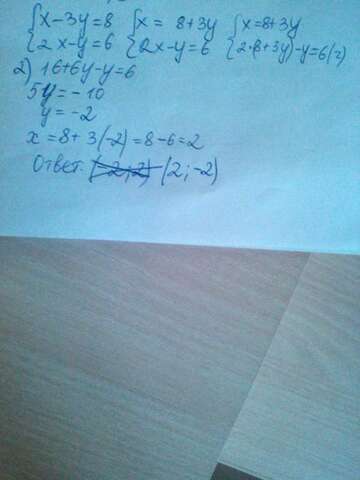 {x-3y=8 {x = 8+3y {x=8+3y
{2x-y=6 {2x-y=6 {2·(8+3y)-y=6(2)
2) 16+6y-y=6
5y=-10
y=-2
x=8+3(-2)=8-6=2
Ответ: (-2;2) (2;-2)